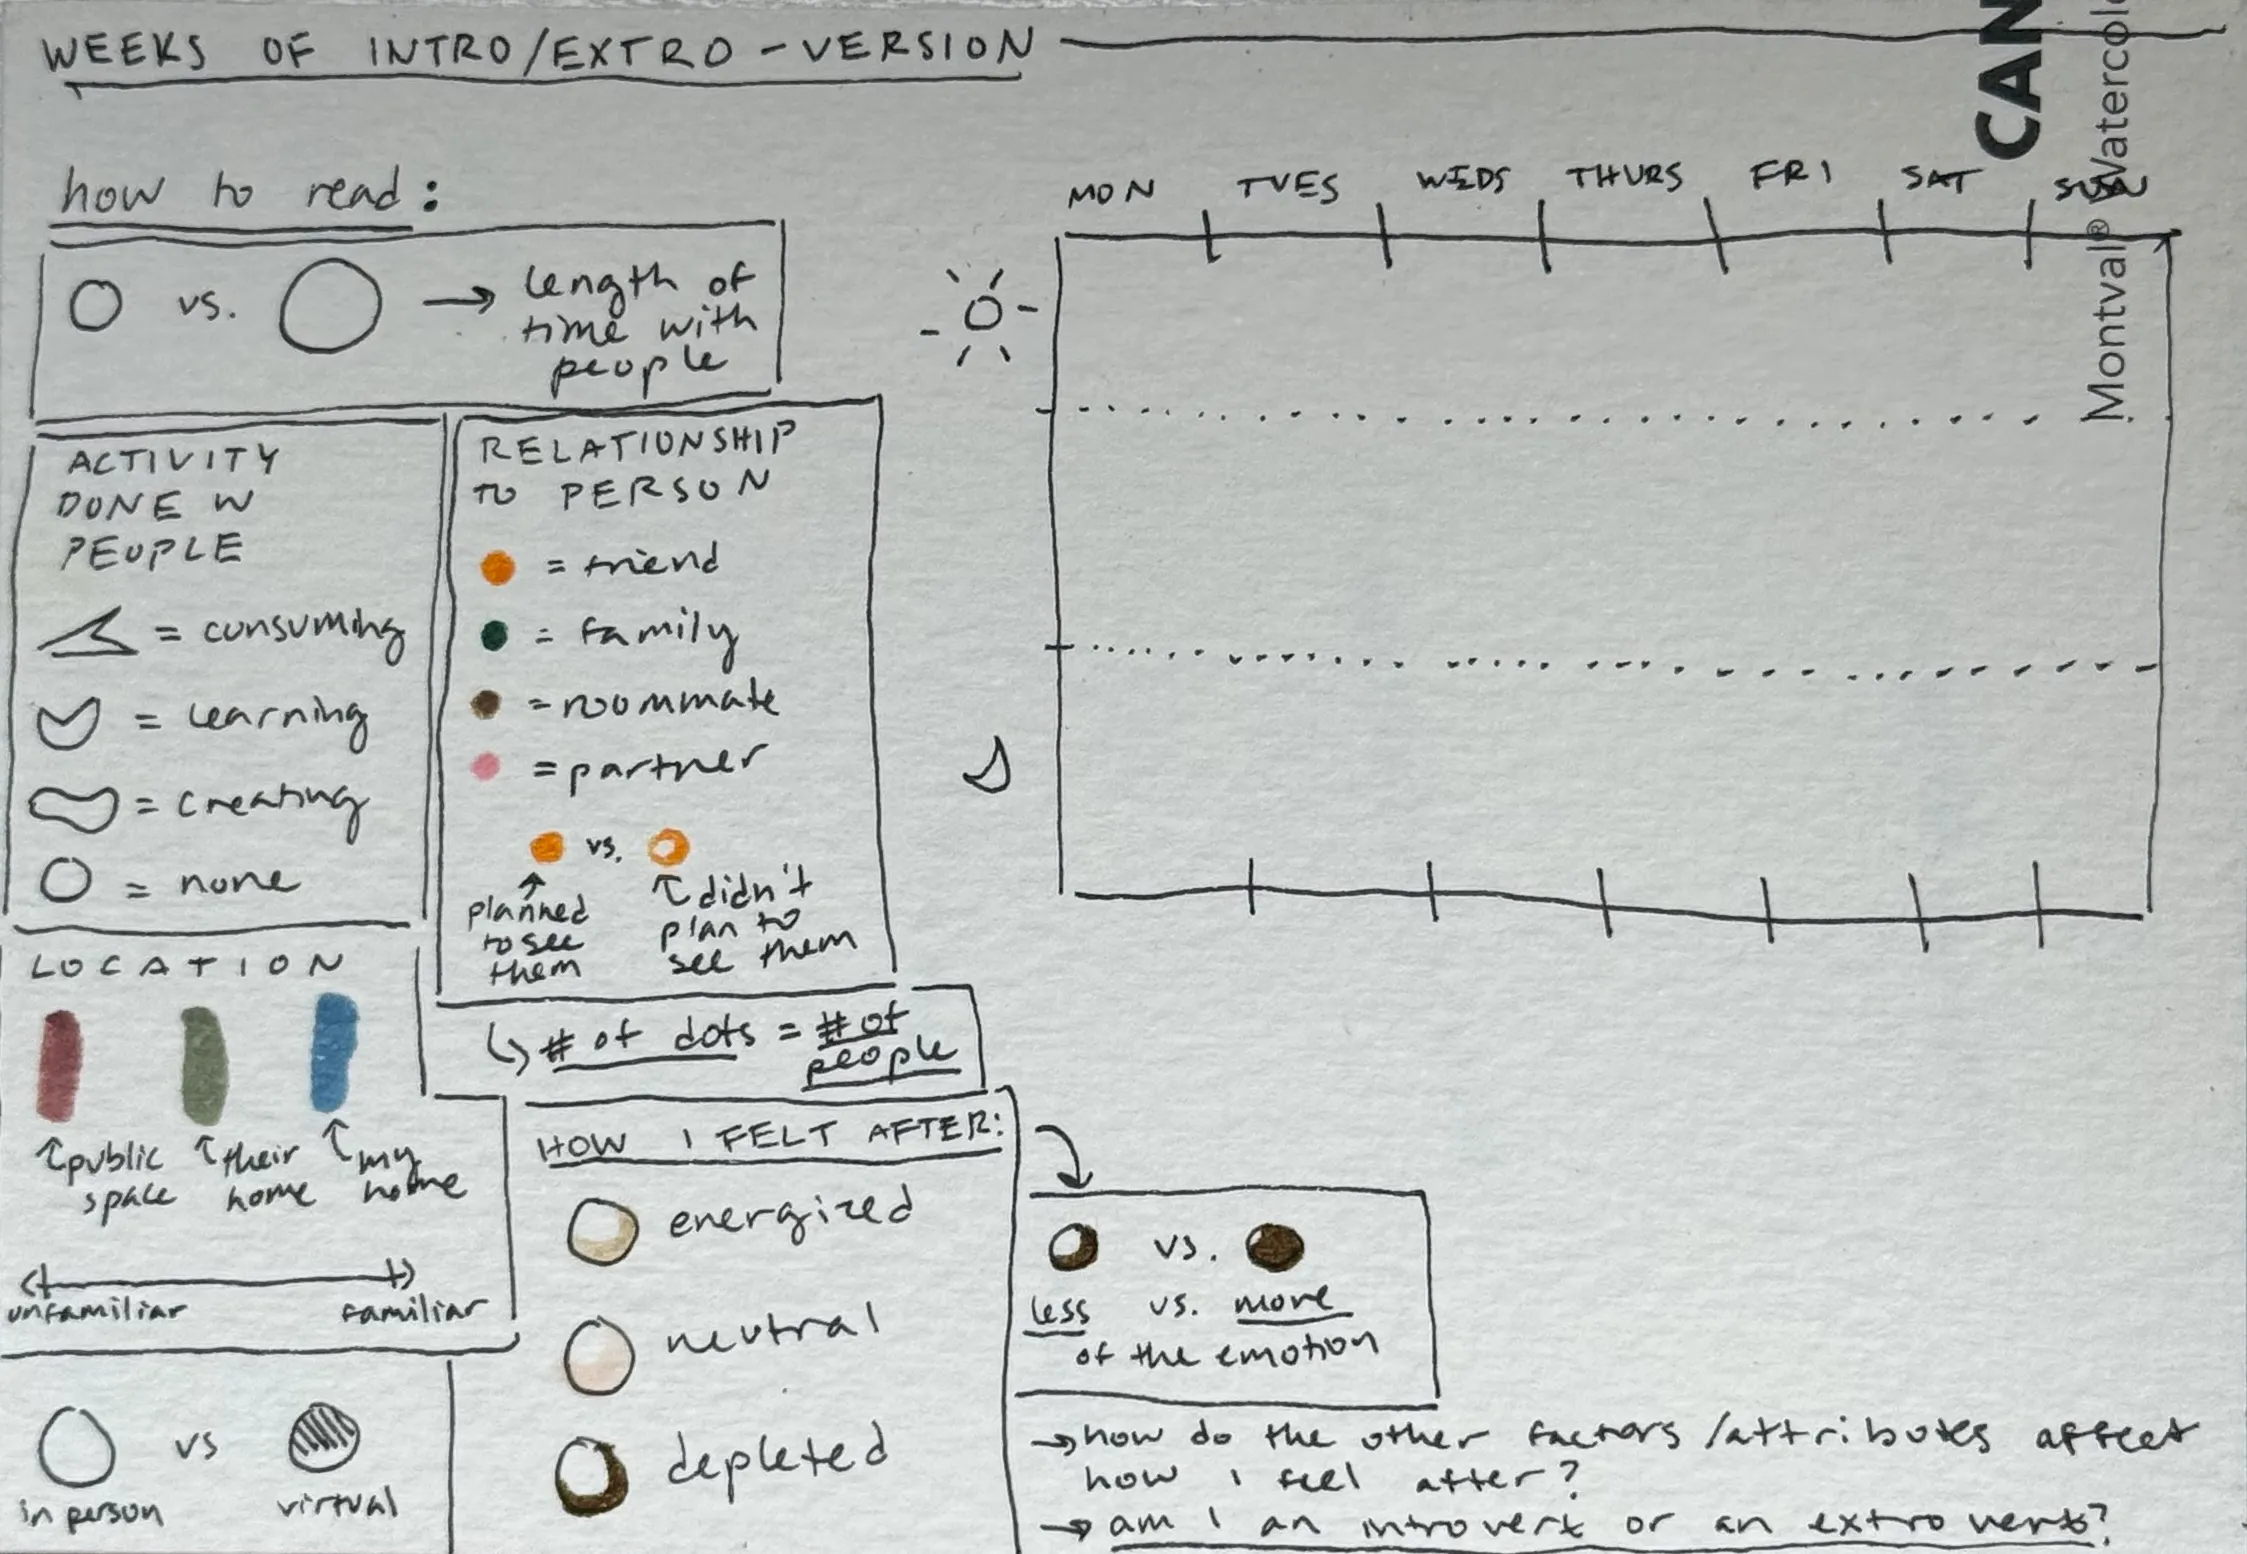 WEEKS OF INTRO/EXTRO-VERSION
how to read:
vs. → length of
time with
people
ACTIVITY
DONE W
PEOPLE
= consuming
= learning
= creating
= none
RELATIONSHIP
TO PERSON
= friend
= family
= roommate
= partner
vs.
planned
to see
them
didn't
plan to
see them
# of dots = # of
people
LOCATION
public
space
their
home
my
home
unfamiliar
familiar
vs
in person
virtual
HOW I FELT AFTER:
energized
neutral
depleted
vs.
less vs. more
of the emotion
→ how do the other factors/attributes affect
how I feel after?
→ am I an introvert or an extrovert?
MON TUES WEDS THURS FRI SAT SUN
CAN
Montval® Watercol